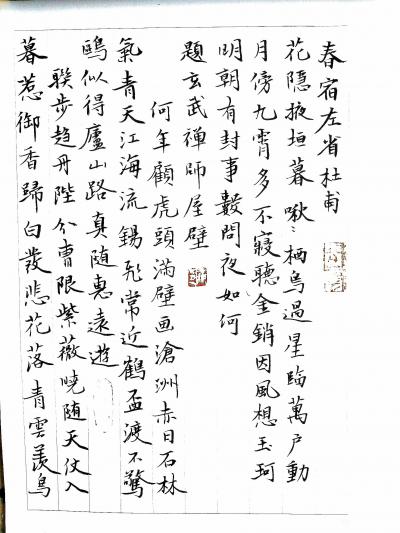 春宿左省杜甫
花隱掖垣暮啾〻栖鳥過星臨萬户動
月傍九霄多不寢聽金鎖因風想玉珂
明朝有封事數問夜如何
題玄武禪師屋壁
何年顧虎頭滿壁画滄洲赤日石林
氣青天江海流錫飛常近鶴盃渡不驚
鷗似得廬山路真随惠遠遊
聯步趨丹陛分曹限紫薇曉随天仗入
暮惹御香歸白髮悲花落青雲羨鳥